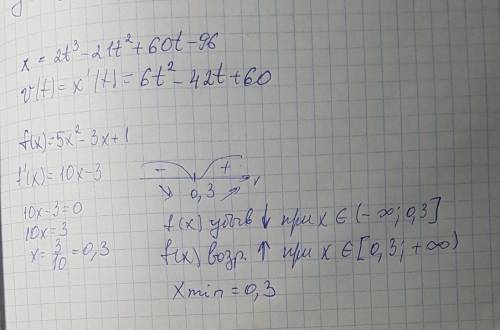 x = 2t³ - 21t² + 60t - 96
v(t) = x'(t) = 6t² - 42t + 60
f(x) = 5x² - 3x + 1
f'(x) = 10x - 3
10x - 3 = 0
10x = 3
x = 3/10 = 0,3
- +
↘ 0,3 ↗ x
f(x) убыв ↓ при x ∈ (-∞; 0,3]
f(x) возр. ↑ при x ∈ [0,3; +∞)
xmin = 0,3